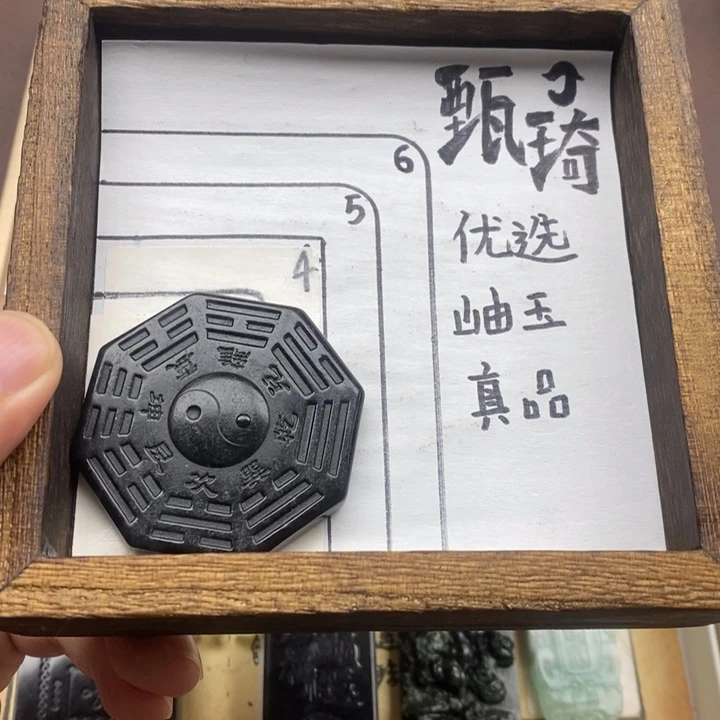 甄琦
优选
岫玉
真品
6
5
4
離
兑
乾
巽
坎
艮
坤
震